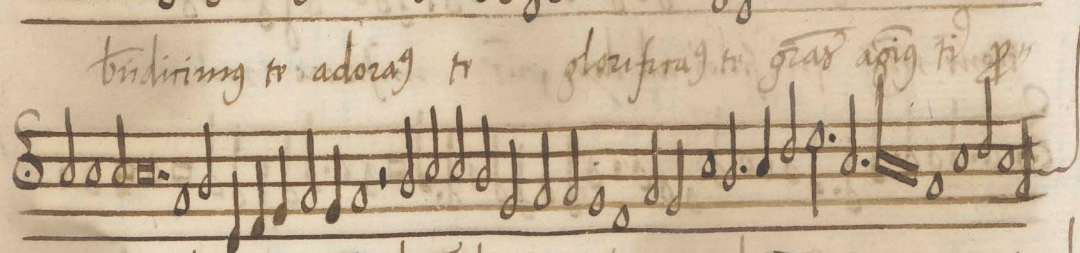 bn̄dicimꝰ te adoraꝰ te glorificaꝰ te gr̄as agim̄ꝰ ti